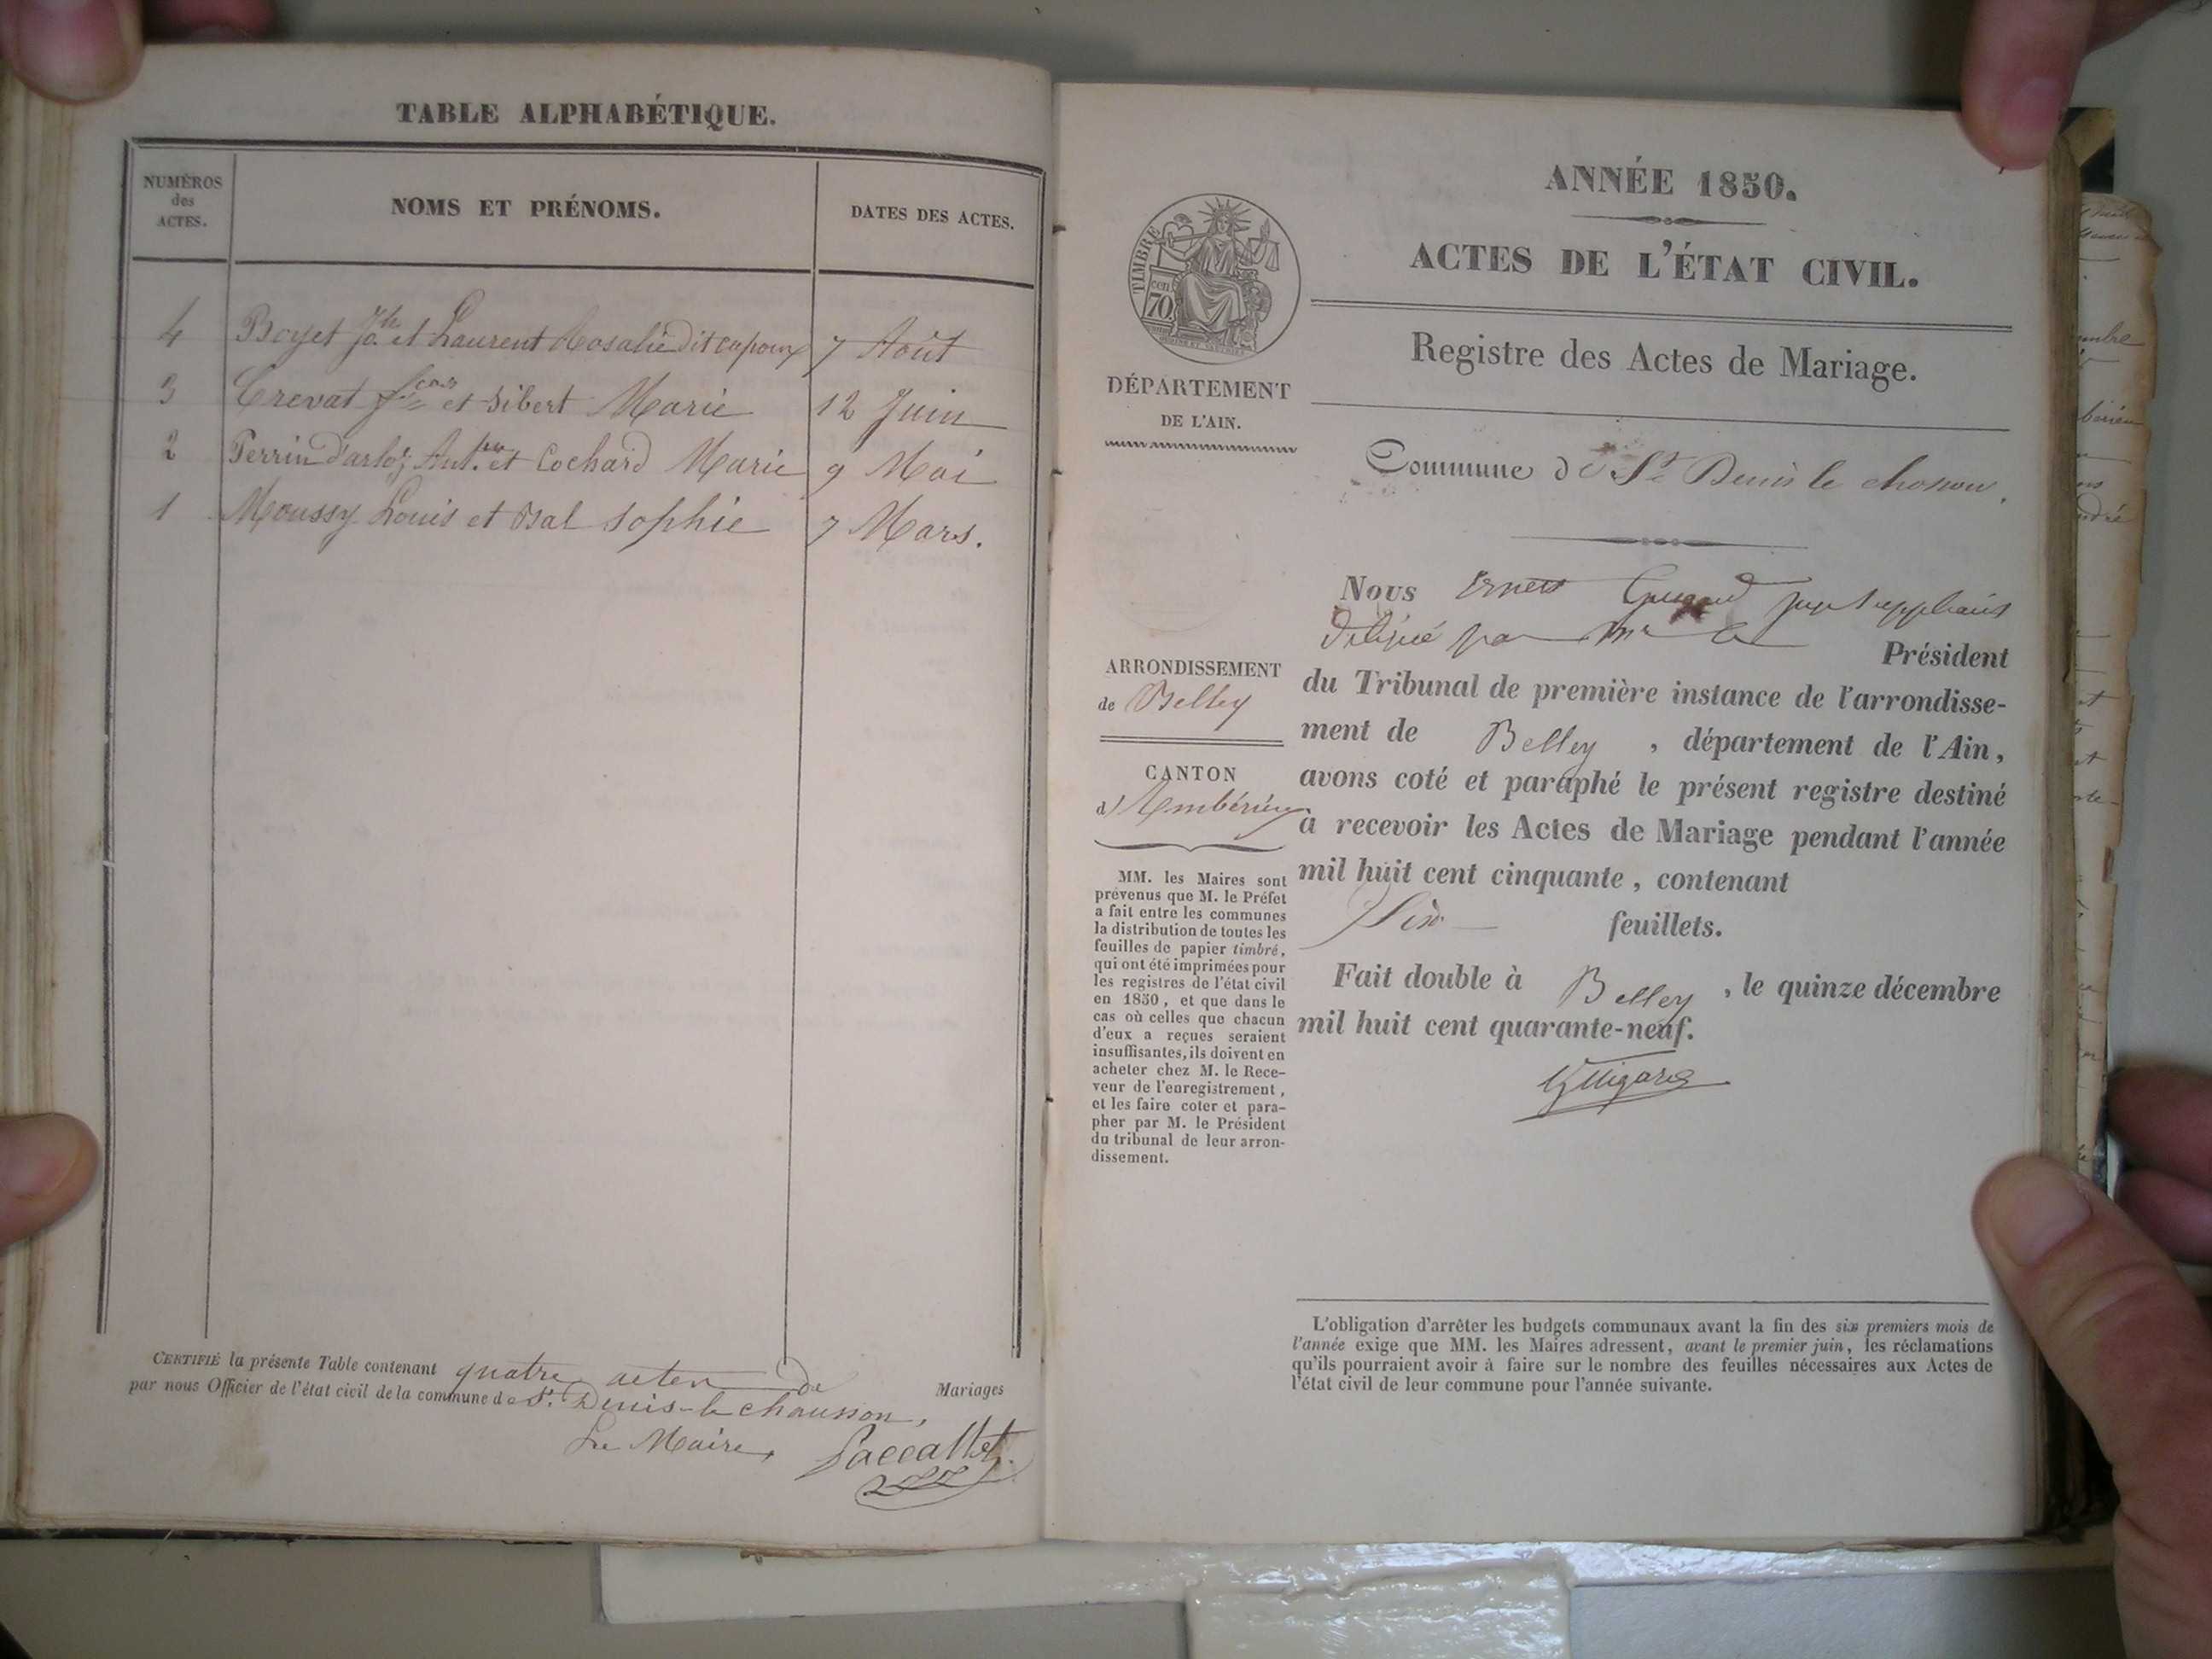 TABLE ALPHABÉTIQUE.
NUMÉROS
des
ACTES.
NOMS ET PRÉNOMS.
DATES DES ACTES.
4 Boyet Jh. et Laurent Rosalie dit 7 Août
3 Crevat et Sibert Marie 12 Juin
2 Perrin d'arloz Ant. et Cochard Marie 9 Mai
1 Moussy Louis et Bal Sophie 7 Mars.
CERTIFIÉ la présente Table contenant quatre actes de Mariages
par nous Officier de l'état civil de la commune de St. Denis-le chausson,
Le Maire,
TIMBRE
70
DÉPARTEMENT
DE L'AIN.
ARRONDISSEMENT
de Belley
CANTON
d'Ambérieu
MM. les Maires sont
prévenus que M. le Préfet
a fait entre les communes
la distribution de toutes les
feuilles de papier timbré,
qui ont été imprimées pour
les registres de l'état civil
en 1850, et que dans le
cas où celles que chacun
d'eux a reçues seraient
insuffisantes, ils doivent en
acheter chez M. le Rece-
veur de l'enregistrement,
et les faire coter et para-
pher par M. le Président
du tribunal de leur arron-
dissement.
ANNÉE 1850.
ACTES DE L'ÉTAT CIVIL.
Registre des Actes de Mariage.
Commune de St Denis le chosson.
Nous Ernest juge suppléant
délégué par Mr le Président
du Tribunal de première instance de l'arrondisse-
ment de Belley, département de l'Ain,
avons coté et paraphé le présent registre destiné
à recevoir les Actes de Mariage pendant l'année
mil huit cent cinquante, contenant
Six feuillets.
Fait double à Belley, le quinze décembre
mil huit cent quarante-neuf.
L'obligation d'arrêter les budgets communaux avant la fin des six premiers mois de
l'année exige que MM. les Maires adressent, avant le premier juin, les réclamations
qu'ils pourraient avoir à faire sur le nombre des feuilles nécessaires aux Actes de
l'état civil de leur commune pour l'année suivante.